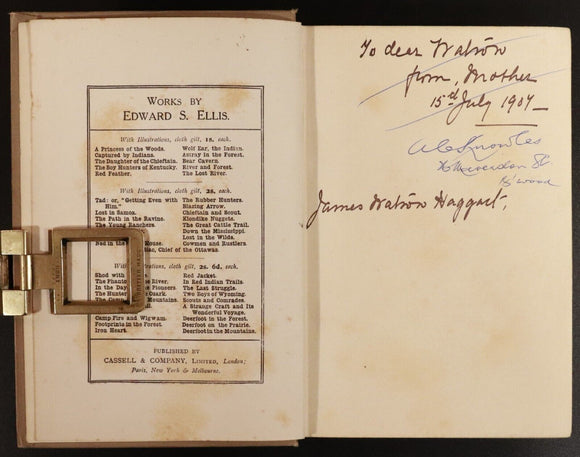 WORKS BY
EDWARD S. ELLIS.
With Illustrations, cloth gilt, 1s. each.
A Princess of the Woods.
Captured by Indians.
The Daughter of the Chieftain.
The Boy Hunters of Kentucky.
Red Feather.
Wolf Ear, the Indian.
Astray in the Forest.
Bear Cavern.
River and Forest.
The Lost River.
With Illustrations, cloth gilt, 2s. each.
Tad: or, "Getting Even with
Him."
Lost in Samoa.
The Path in the Ravine.
The Young Ranchers.
The Rubber Hunters.
Blazing Arrow.
Chieftain and Scout.
Klondike Nuggets.
The Great Cattle Trail.
Down the Mississippi.
Lost in the Wilds.
Cowmen and Rustlers.
House.
Chief of the Ottawas.
Illustrations, cloth gilt, 2s. 6d. each.
Shod with
The River.
In the Day Pioneers.
The Hunter Ozark.
The Mountains.
Camp Fire and Wigwam.
Footprints in the Forest.
Iron Heart.
Red Jacket.
In Red Indian Trails.
The Last Struggle.
Two Boys of Wyoming.
Scouts and Comrades.
A Strange Craft and Its
Wonderful Voyage.
Deerfoot in the Forest.
Deerfoot on the Prairie.
Deerfoot in the Mountains.
PUBLISHED BY
CASSELL & COMPANY, LIMITED, London;
Paris, New York & Melbourne.
To dear Watson
from, Mother
15rd July 1907
Knowles
St
B'wood
James Watson Haggart.